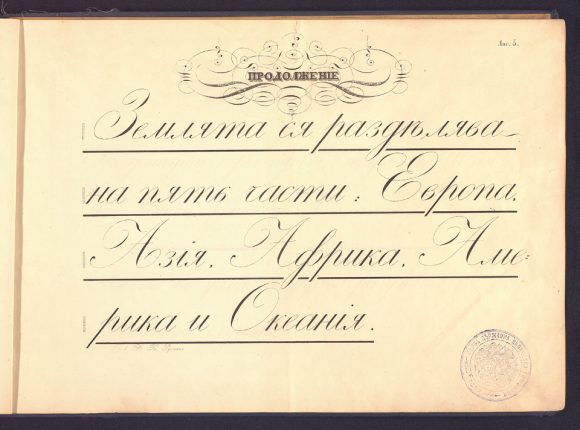 Лис. 5.
ПРОДОЛЖЕНІЕ
Землята ся раздѣлява
на пять части: Европа.
Азія. Африка. Аме-
рика и Океанія.